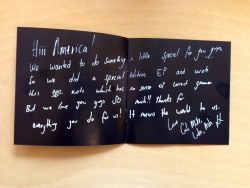 Hiii America!
We wanted to do something a little special for you guys
So we did a special edition EP and wrote
this note which has no sense of correct grammar
But we love you guys SO much!! thanks for
everything you do for us! It means the world to us.
Love